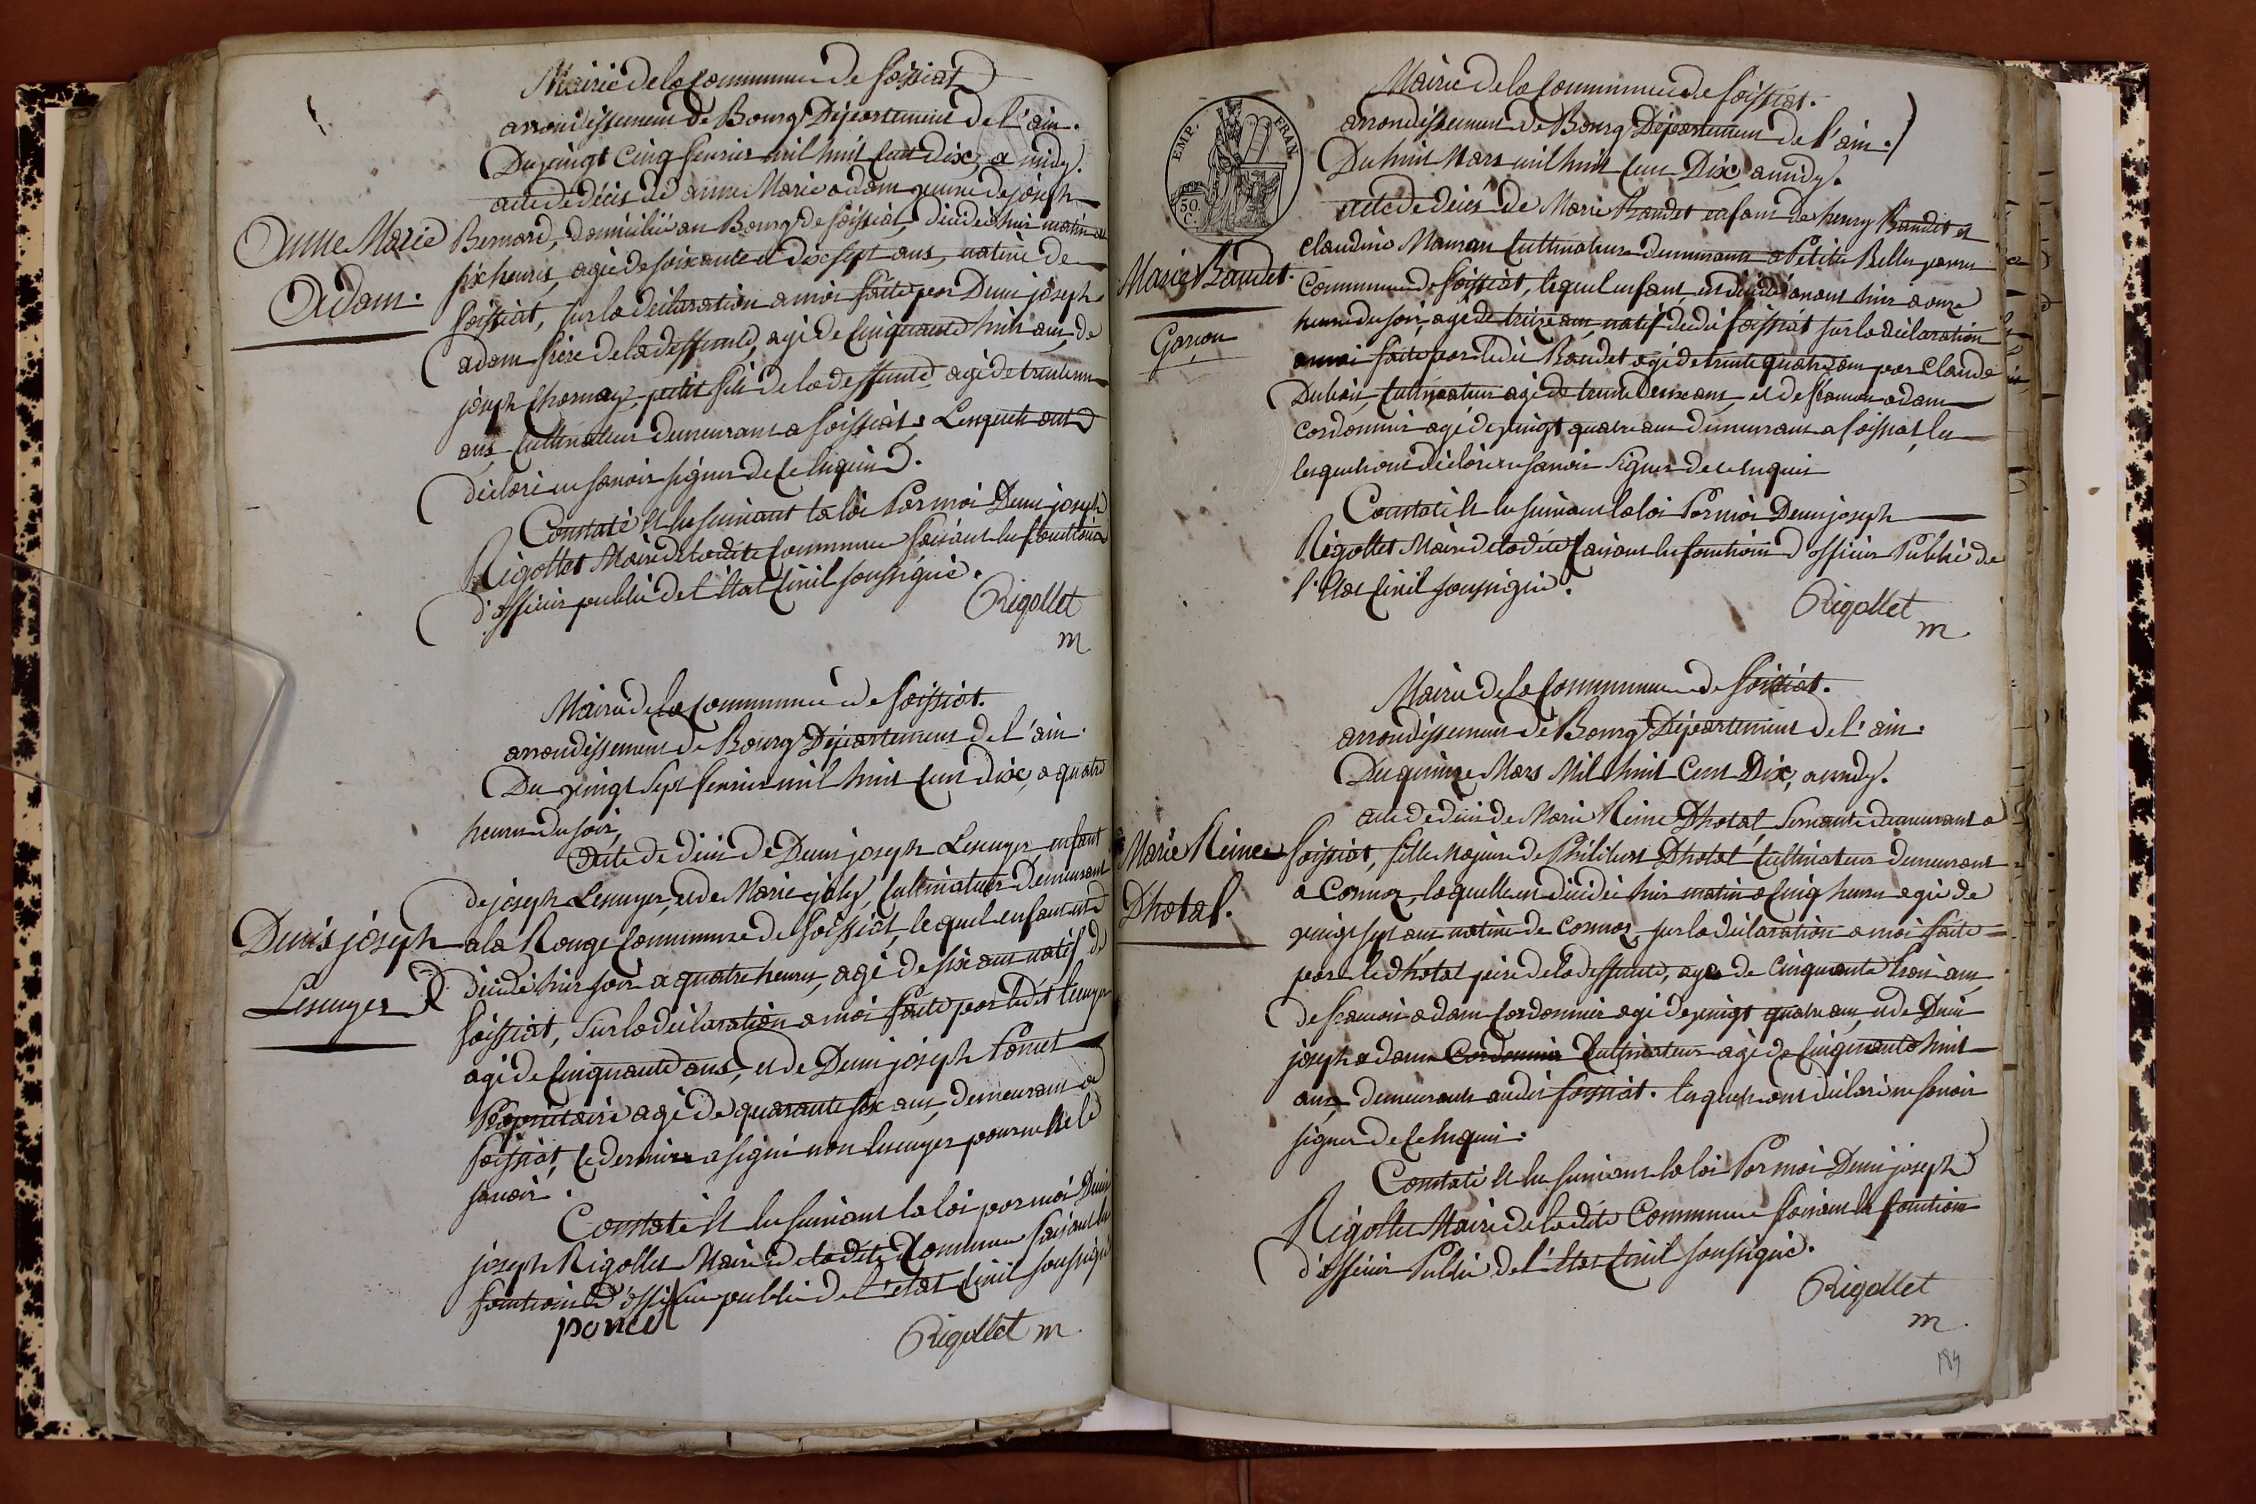 Mairie de la Commune de foissiat
arrondissement de Bourg Département de l'ain.
Du vingt Cinq fevrier mil huit Cent Dix, a midy.
acte de décès de anne Marie adam veuve de joseph
Anne Marie
Adam.
Bernard, domiciliée au Bourg de foissiat, décédée hier matin a
six heures, agée de soixante et dix sept ans, native de
foissiat, sur la déclaration a moi faite par Denis joseph
adam frère de la deffunte, agé de Cinquante huit ans, de
joseph Chornay petit fils de la deffunte agé de trente un
ans Cultivateur demeurant a foissiat, Lesquels ont
déclaré ne savoir signer de Ce Enquis.
Constaté Et lu suivant la loi Par moi Denis joseph
Rigollet Maire de ladite Commune faisant les fonctions
d'officier public de l'Etat Civil soussigné.
Rigollet
m
Mairie de la Commune de foissiat.
arrondissement de Bourg Département de l'ain.
Du vingt sept fevrier mil huit Cent dix, a quatre
heures du soir,
acte de décès de Denis joseph Lescuyer enfant
de joseph Lescuyer, et de Marie joly, Cultivateur demeurant
Denis joseph
Lescuyer
a la Rouge Commune de foissiat, lequel enfant est
décédé hier soir a quatre heures, agé de six ans natif de
foissiat, sur la déclaration a moi faite par ledit lescuyer
agé de Cinquante ans, et de Denis joseph Poncet
Propriétaire agé de quarante six ans, demeurant a
foissiat, le dernier a signé non lescuyer pour ne le
savoir.
Constaté Et lu suivant la loi par moi Denis
joseph Rigollet Maire de ladite Commune faisant les
fonctions d'officier public de l'état Civil soussigné
poncet
Rigollet m
EMP. FRAN.
50 C.
Mairie de la Commune de foissiat.
arrondissement de Bourg Département de l'ain.
Du huit Mars mil huit Cent Dix, a midy.
acte de décès de Marie Baudet enfant de henry Baudet et
Marie Baudet
Garçon
claudine Maman Cultivateur demeurant a Petite Bellevavre
Commune de foissiat, lequel enfant est décédé avant hier a onze
heures du soir, agé de treize ans, natif dudit foissiat sur la déclaration
a moi faite par ledit Baudet agé de trente quatre ans par Claude
Dubois, Cultivateur agé de trente deux ans, et de francois adam
cordonnier agé de vingt quatre ans demeurant a foissiat, les
lesquels ont déclaré ne savoir signer de ce enquis
Constaté Et lu suivant la loi Par moi Denis joseph
Rigollet Maire de ladite faisant les fonctions d'officier Public de
l'Etat Civil soussigné.
Rigollet
m
Mairie de la Commune de foissiat.
arrondissement de Bourg Département de l'ain.
Du quinze Mars Mil huit Cent Dix, a midy.
acte de décès de Marie Reine Dhotal, servante demeurant a
Marie Reine
Dhotal.
foissiat, fille Majeure de Philibert Dhotal Cultivateur demeurant
a Cormoz, laquelle est décédée hier matin a Cinq heures agée de
vingt sept ans native de Cormoz, sur la déclaration a moi faite
par le dhotal père de la deffunte, agé de Cinquante trois ans,
de francois adam Cordonnier agé de vingt quatre ans, et de Denis
joseph adam Cordonnier Cultivateur agé de Cinquante huit
ans demeurants audit foissiat. lesquels ont déclaré ne savoir
signer de Ce Enquis.
Constaté Et lu suivant la loi Par moi Denis joseph
Rigollet Maire de ladite Commune faisant les fonctions
d'officier Public de l'Etat Civil soussigné.
Rigollet
m.
184